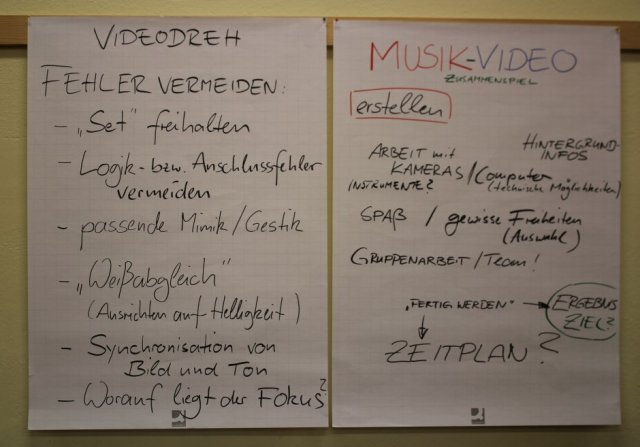 VIDEODREH
FEHLER VERMEIDEN:
- „Set" freihalten
- Logik- bzw. Anschlussfehler
vermeiden
- passende Mimik/Gestik
- „Weißabgleich"
(Ausrichten auf Helligkeit)
- Synchronisation von
Bild und Ton
- Worauf liegt der Fokus?
MUSIK-VIDEO
ZUSAMMENSPIEL
erstellen
HINTERGRUND-
INFOS
ARBEIT mit
KAMERAS/Computer
INSTRUMENTE? (technische Möglichkeiten)
SPAß / gewisse Freiheiten
(Auswahl)
GRUPPENARBEIT/Team!
„FERTIG WERDEN" → ERGEBNIS
ZIEL?
ZEITPLAN?